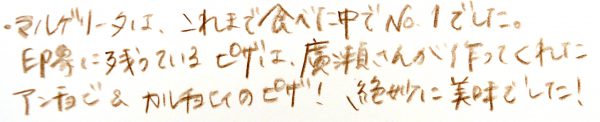 ・マルゲリータは、これまで食べた中でNo.1でした。
印象に残っているピザは、廣瀬さんが作ってくれた
アンチョビ&カルチョヒィのピザ!、絶妙に美味でした!